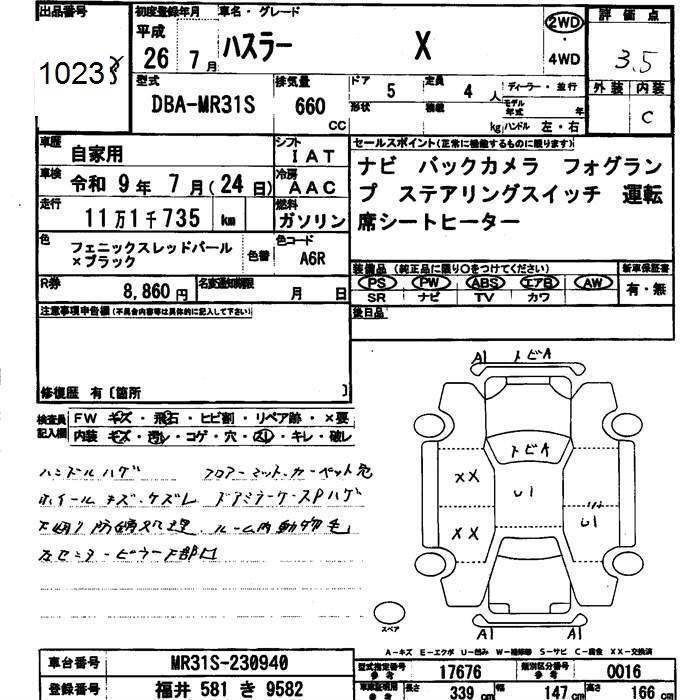 出品番号 初度登録年月 車名・グレード 評価点
平成 26年 7月 ハスラー X 2WD・4WD 3.5
1023
型式 排気量 ドア 5 定員 4人 ディーラー・並行 外装 内装
DBA-MR31S 660 CC 形状 積載 kg モデル年式 年 ハンドル 左・右 C
車歴 自家用 シフト IAT セールスポイント(正常に機能するものに限ります)
車検 令和 9年 7月(24日) 冷房 AAC ナビ バックカメラ フォグラン
走行 11万1千735 km 燃料 ガソリン プ ステアリングスイッチ 運転
席シートヒーター
色 フェニックスレッドパール×ブラック 色替 色コード A6R
装備品(純正品に限り〇をつけてください) 新車保証書
R券 8,860円 名変通知期限 月 日 PS PW ABS エアB AW 有・無
SR ナビ TV カワ
注意事項申告欄(不具合内容等は具体的に記入して下さい) 後日品
修復歴 有〔箇所 〕
検査員記入欄 FW キズ・飛石・ヒビ割・リペア跡・×要
内装 キズ・汚レ・コゲ・穴・スレ・キレ・破レ
ハンドルハゲ フロアーマット、カーペット荒
ホイールキズ・ケズレ ドアミラーケースPハゲ
下廻り防錆処理 ルーム内動物毛
左センターピラー下部凹
A1 トビA
トビA
XX U1 U1
XX
スペア A1 A1
A-キズ E-エクボ U-凹み W-補修跡 S-サビ C-腐食 XX-交換済
車台番号 MR31S-230940 型式指定番号 参考 17676 類別区分番号 参考 0016
登録番号 福井 581 き 9582 車庫証明用 参考 長さ 339 cm 幅 147 cm 高さ 166 cm